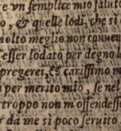 e vn semplice mio saluto
, & quelle lodi, che si
molto meglio non conuen
esser lodato per degno
pregerei, & carissimo
per merito mio, e no
troppo non m'offendess
da me si poco seruito